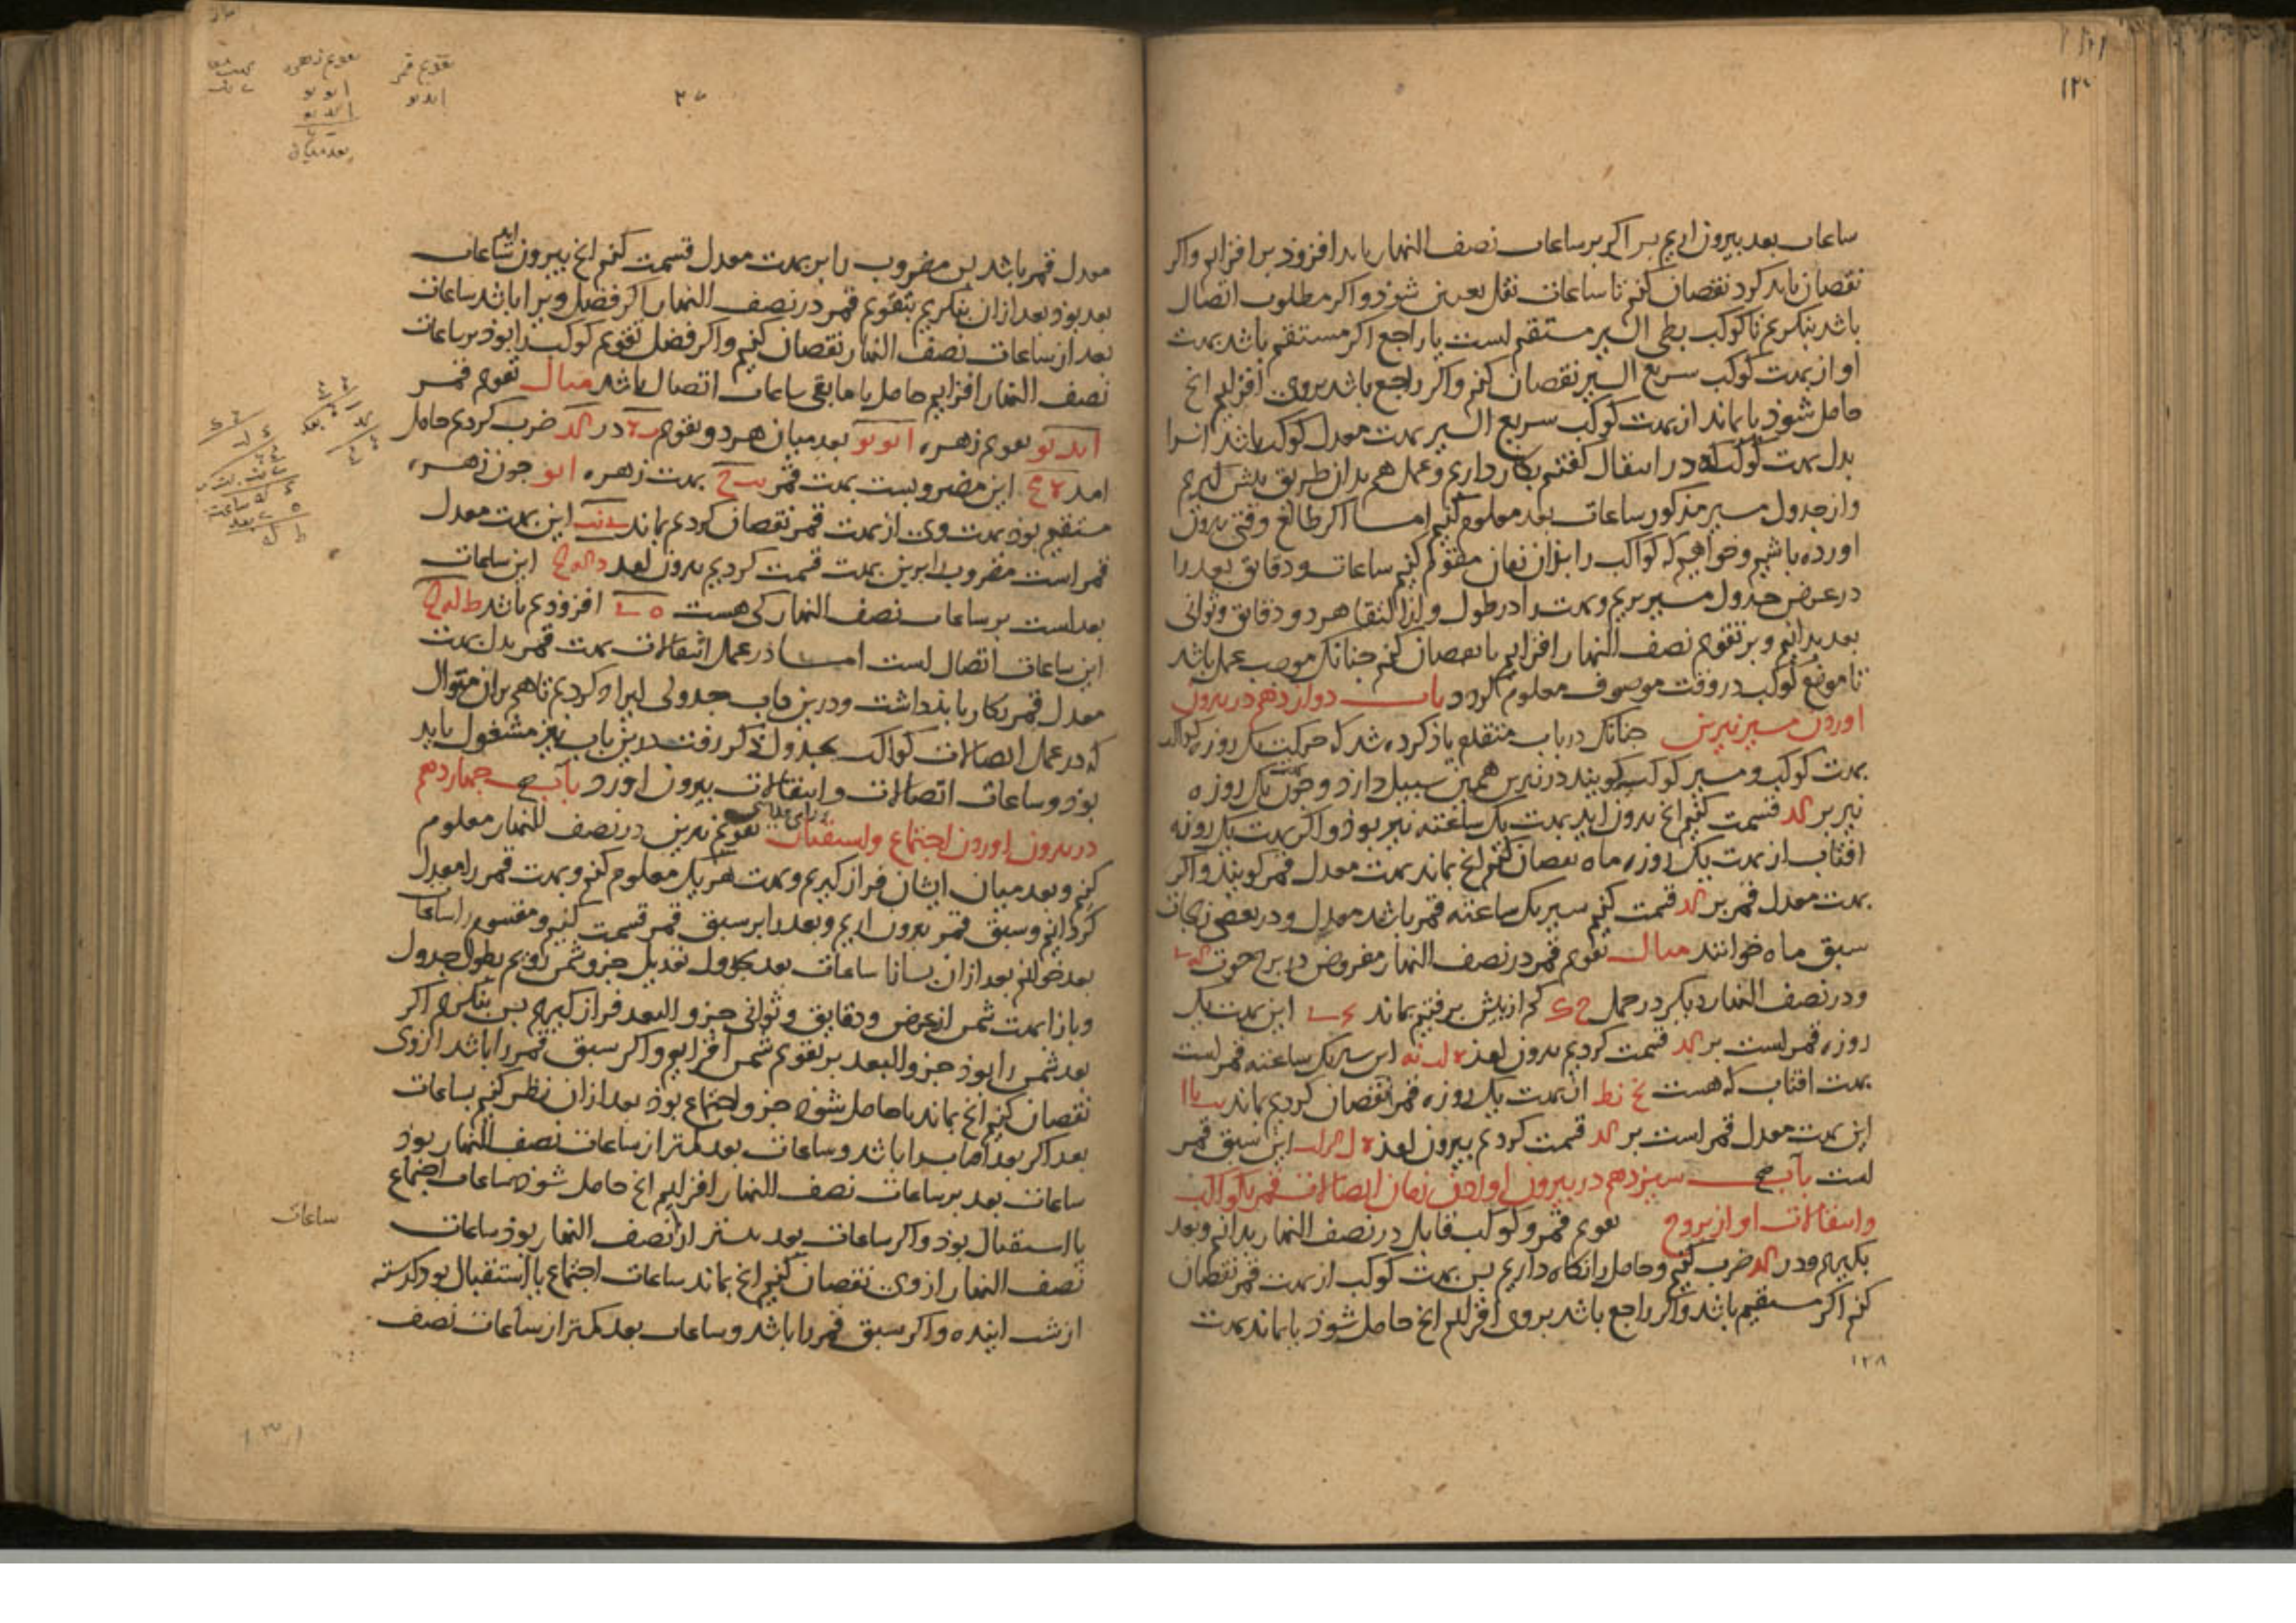 ساعات بعد بیرون اریم پس اگر بر ساعات نصف النهار باید افزود بر افزایم واکر
نقصان باید کرد نقصان کنم تا ساعات نقل معین شوذ واکر مطلوب اتصال
باشد بنکریم تا کوکب بطی السیر مستقیم است یا راجع اکر مستقیم باشد بهت
او از بهت کوکب سریع السیر نقصان کنم واکر راجع باشد بروی افزایم انچ
حاصل شوذ یا بماند از بهت کوکب سریع السیر بهت معدل کوکب باشد انرا
بدل بهت کوکب که در انتقال کفتم بکار داریم وعمل هم بدان طریق پیش کیریم
واز جدول مسیر مذکور ساعات بعد معلوم کنیم اما اکر طالع وقتی بیرون
اورده باشیم وخواهیم که کواکب را بذان زمان مقوم کنیم ساعات ودقایق بعد را
در عرض جدول مسیر بریم وبهت را در طول واز التقا هر دو دقایق وثوانی
بعد بدانیم وبر تقویم نصف النهار افزایم یا نقصان کنم جنانک موجب عمل باشد
تا موضع کوکب در وقت موصوف معلوم کردد باب دوازدهم در بیرون
اوردن مسیر نیرین جنانک در باب متقدم یاذ کرده شد که حرکت یک روزه کواکب
بهت کوکب ومسیر کوکب کویند در نیرین همین سبیل دارد وجون بهت یک روزه
نیر بر کد قسمت کنیم انچ بیرون اید بهت یک ساعته نیر بوذ واکر بهت یک روزه
افتاب از بهت یک روزه ماه نقصان کنم انچ بماند بهت معدل قمر کویند واکر
بهت معدل قمر بر کد قسمت کنم سیر یک ساعته قمر باشد معدل ودر بعضی زیجات
سبق ماه خوانند مثال تقویم قمر در نصف النهار مفروض در برج حوت
ودر نصف النهار دیکر در حمل کم از بیش برفتیم بماند این بهت یک
روزه قمر است بر کد قسمت کردیم بیرون امذ این سیر یک ساعته قمر است
بهت افتاب که هست نح نط از بهت یک روزه قمر نقصان کردیم بماند
این بهت معدل قمر است بر کد قسمت کردیم بیرون امذ این سبق قمر
است باب سیزدهم در بیرون اوردن زمان اتصالات قمر با کواکب
وانتقالات او از بروج تقویم قمر وکوکب قابل در نصف النهار بدانم وبعد
بکیریم ودر کد ضرب کنیم وحاصل را نکاه داریم پس بهت کوکب از بهت قمر نقصان
کنم اکر مستقیم باشد واکر راجع باشد بروی افزایم انچ حاصل شوذ یا بماند بهت
۱۲۸
تقویم قمر
تقویم زهره
بعد میان
معدل قمر باشد پس مضروب را برین بهت معدل قسمت کنم انچ بیرون اید ساعات
بعد بوذ وبعد از ان بنکریم بتقویم قمر در نصف النهار اکر فضل ویرا باشد ساعات
بعد از ساعات نصف النهار نقصان کنیم واکر فضل تقویم کوکب را بود بر ساعات
نصف النهار افزایم حاصل یا ما بقی ساعات اتصال باشد مثال تقویم قمر
تقویم زهره بعد میان هر دو تقویم در کد ضرب کردیم حاصل
امد این مضروبست بهت قمر بهت زهره جون زهره
مستقیم بوذ بهت وی از بهت قمر نقصان کردیم بماند این بهت معدل
قمر است مضروب را برین بهت قسمت کردیم بیرون امد این ساعات
بعد است بر ساعات نصف النهار کی هست افزوذیم باشد
این ساعات اتصال است اما در عمل انتقالات بهت قمر بدل بهت
معدل قمر بکار باید داشت ودرین باب جدولی ایراد کردیم تا هم بران منوال
که در عمل اتصالات کواکب بجدول ذکر رفت درین باب نیز مشغول باید
بوذ وساعات اتصالات وانتقالات بیرون اورد باب جهاردهم
در بیرون اوردن اجتماع واستقبال تقویم نیرین در نصف النهار معلوم
کنم وبعد میان ایشان فراز کیریم وبهت هر یک معلوم کنم وبهت قمر را معدل
کردانیم وسبق قمر بیرون اریم وبعد را بر سبق قمر قسمت کنیم ومقسوم را ساعات
بعد خوانم بعد از ان بسا تا ساعات بعد بجدول تعدیل جزو شمس رویم بطول جدول
وبازا بهت شمس از عرض ودقایق وثوانی جزو البعد فراز کیریم پس بنکریم اکر
بعد شمس را بوذ جزو البعد بر تقویم شمس افزایم واکر سبق قمر را باشد از وی
نقصان کنیم انچ بماند یا حاصل شوذ جزو اجتماع بوذ بعد از ان نظر کنیم بساعات
بعد اکر بعد افتاب را باشد وساعات بعد کمتر از ساعات نصف النهار بوذ
ساعات بعد بر ساعات نصف النهار افزایم انچ حاصل شوذ ساعات اجتماع
یا استقبال بوذ واکر ساعات بعد بیشتر از نصف النهار بوذ ساعات
نصف النهار از وی نقصان کنیم انچ بماند ساعات اجتماع یا استقبال بود کذشته
از شب اینده واکر سبق قمر را باشد وساعات بعد کمتر از ساعات نصف
ساعات